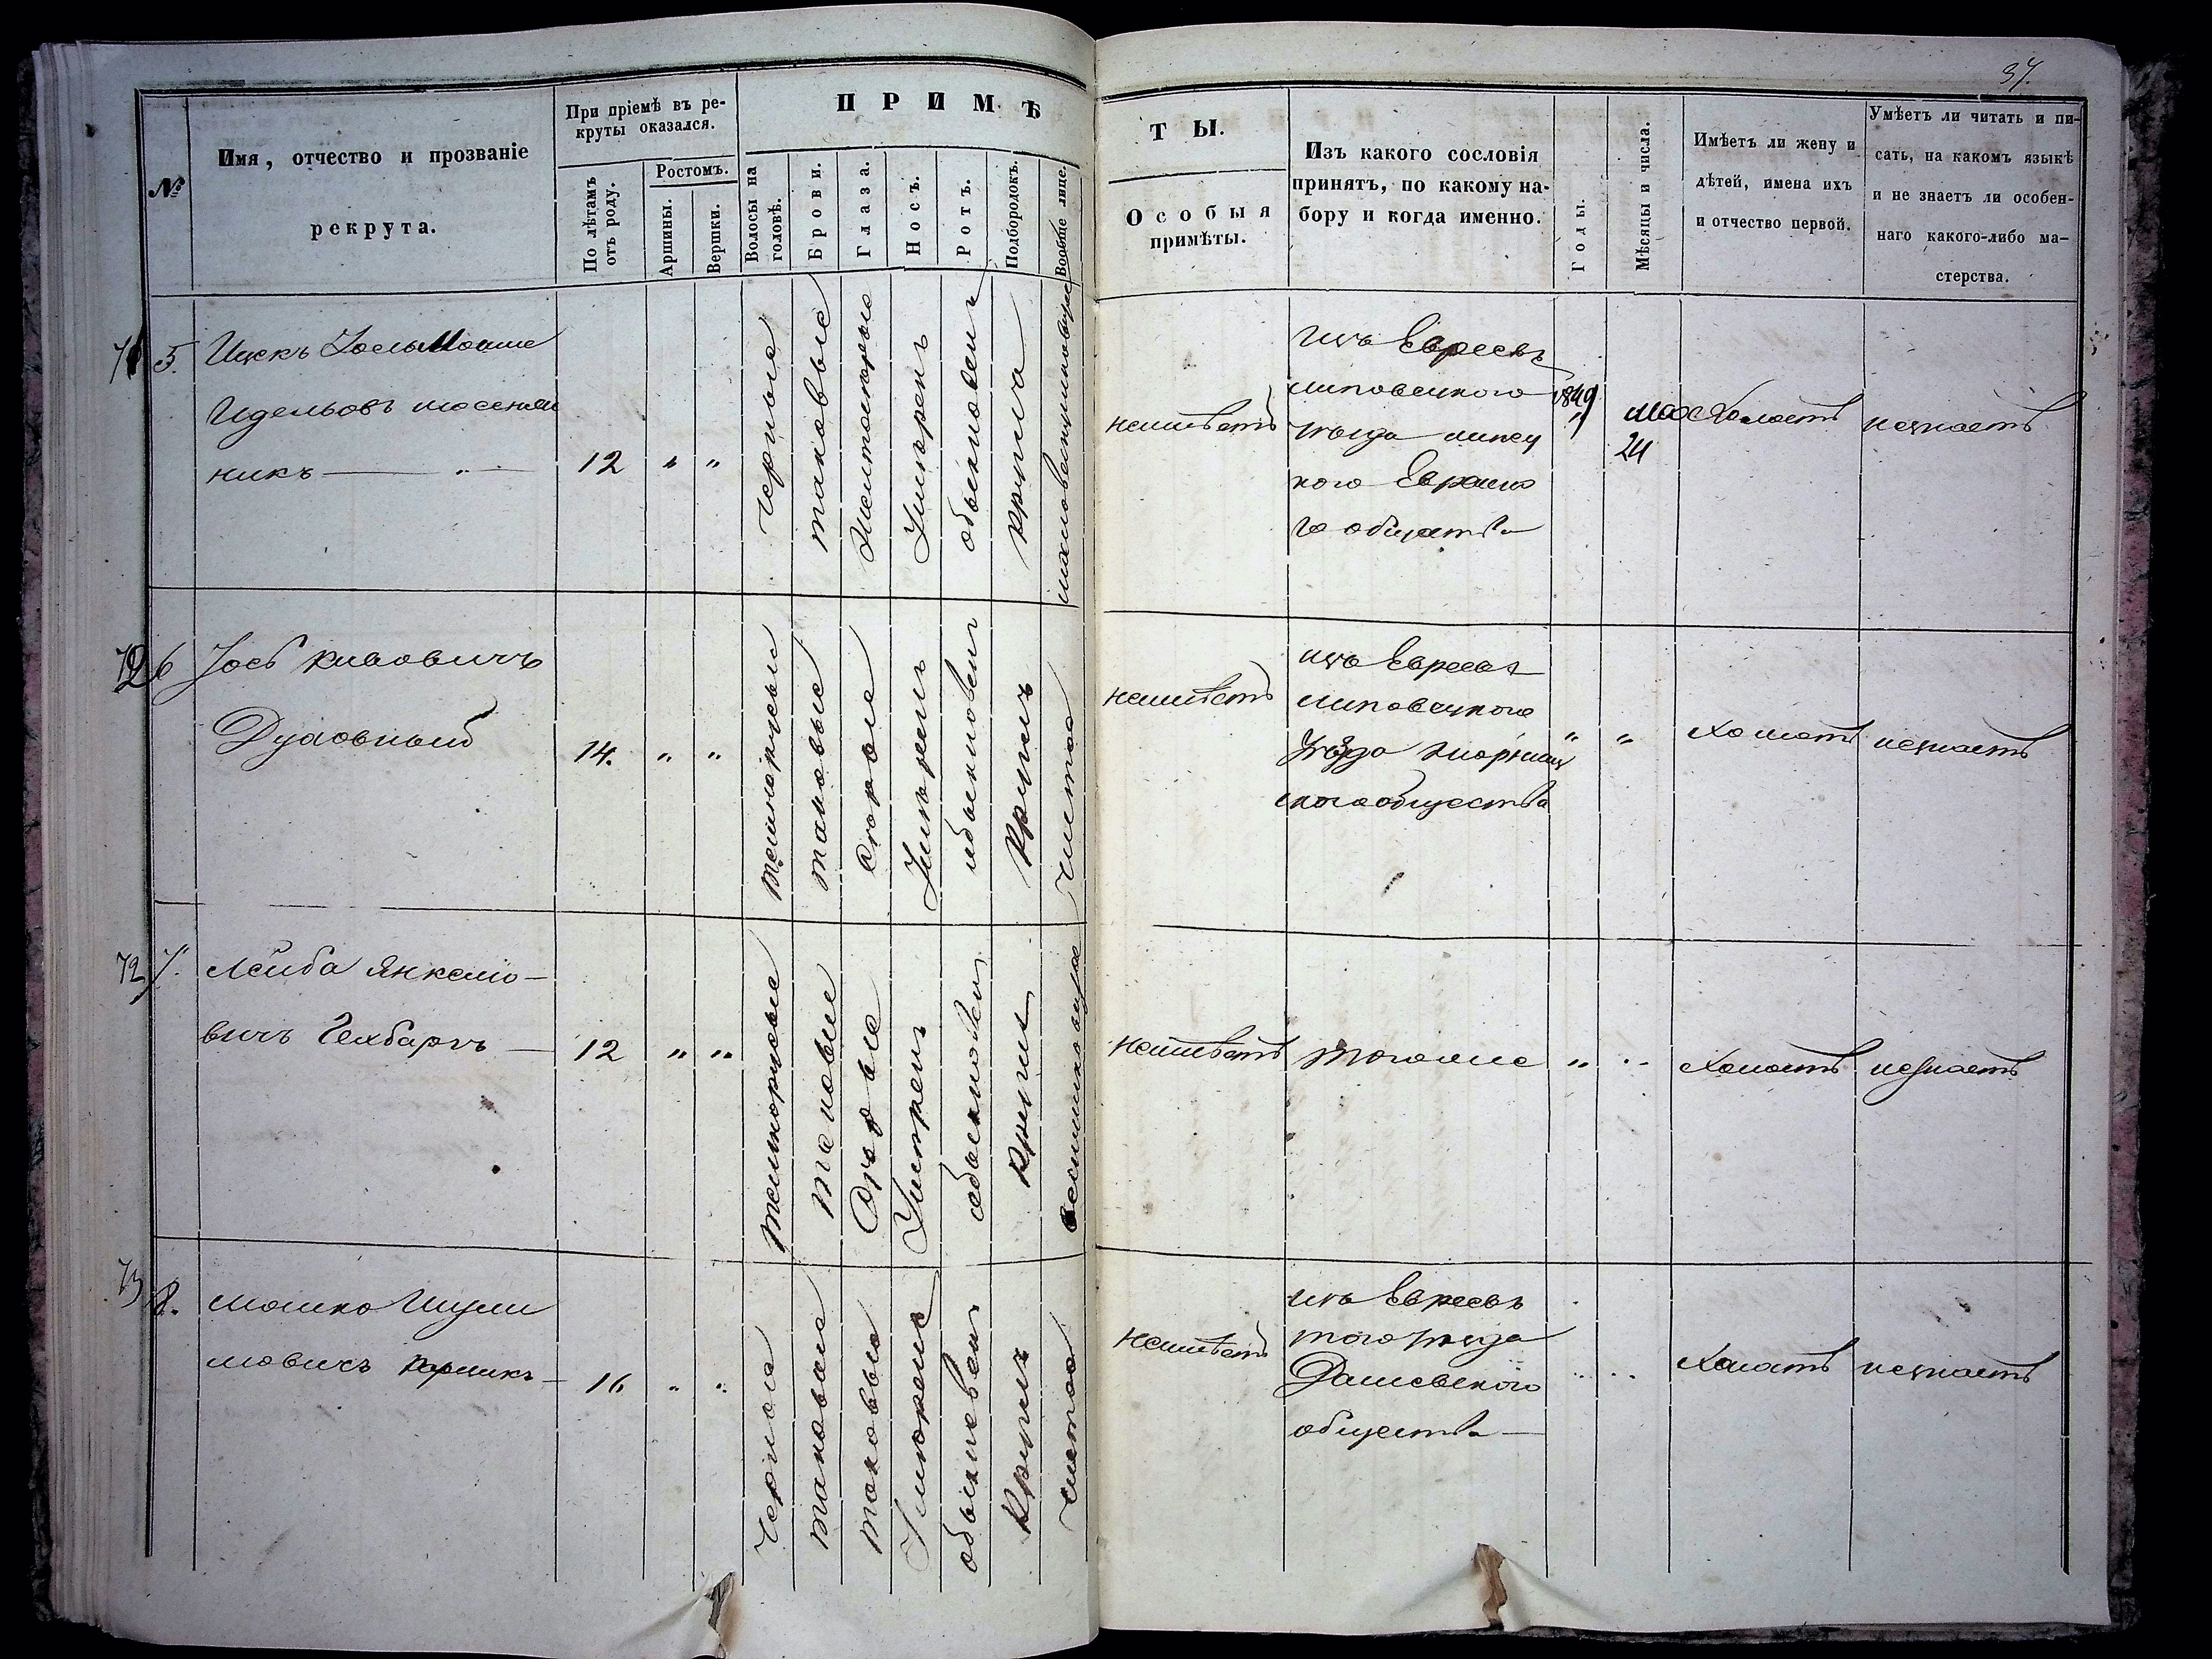 37.
№
Имя, отчество и прозваніе
рекрута.
При пріемѣ въ ре-
круты оказался.
По лѣтамъ
отъ роду.
Ростомъ.
Аршины.
Вершки.
ПРИМѢ
Волосы на
головѣ.
Брови.
Глаза.
Носъ.
Ротъ.
Подбородокъ.
Вообще лице.
ТЫ.
Особыя
примѣты.
Изъ какого сословія
принятъ, по какому на-
бору и когда именно.
Годы.
Мѣсяцы и числа.
Имѣетъ ли жену и
дѣтей, имена ихъ
и отчество первой.
Умѣетъ ли читать и пи-
сать, на какомъ языкѣ
и не знаетъ ли особен-
наго какого-либо ма-
стерства.
5.
Ицекъ
Идельовъ
никъ
12
" "
черные
таковые
Умѣренъ
обыкновен
кругла
неимѣетъ
изъ Евреевъ
липовецкого
уѣзда
кого Евреиско
го общества
1849
мая
24
Холостъ
незнаетъ
6
Іосъ
Духовный
14.
" "
темнорусые
таковые
серые
Умѣренъ
обыкновен
Круглъ
чистое
неимѣетъ
изъ Евреевъ
липовецкого
Уѣзда
ского общества
" "
Холостъ
незнаетъ
72
7.
Лейба Янкелю-
вичъ
12
" "
темнорусые
таковые
серые
Умѣренъ
обыкновен
круглъ
неимѣетъ
тогоже
" "
Холостъ
незнаетъ
73
8.
Мошко Шули
мовичъ
16
" "
черные
таковые
таковые
Умѣренъ
обыкновен
Круглъ
чистое
неимѣетъ
изъ Евреевъ
того уѣзда
Дашевского
общества
Холостъ
незнаетъ